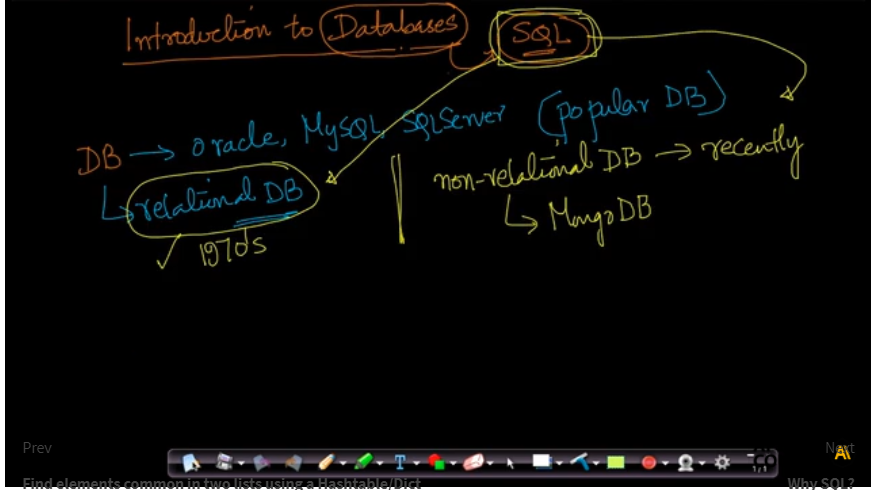 Introduction to Databases SQL
DB → Oracle, MySQL, SQLServer (popular DB)
↳ relational DB
✓ 1970's
non-relational DB → recently
↳ MongoDB
Prev
Next
T
1/1
Find elements common in two lists using a Hashtable/Dict
Why SQL?